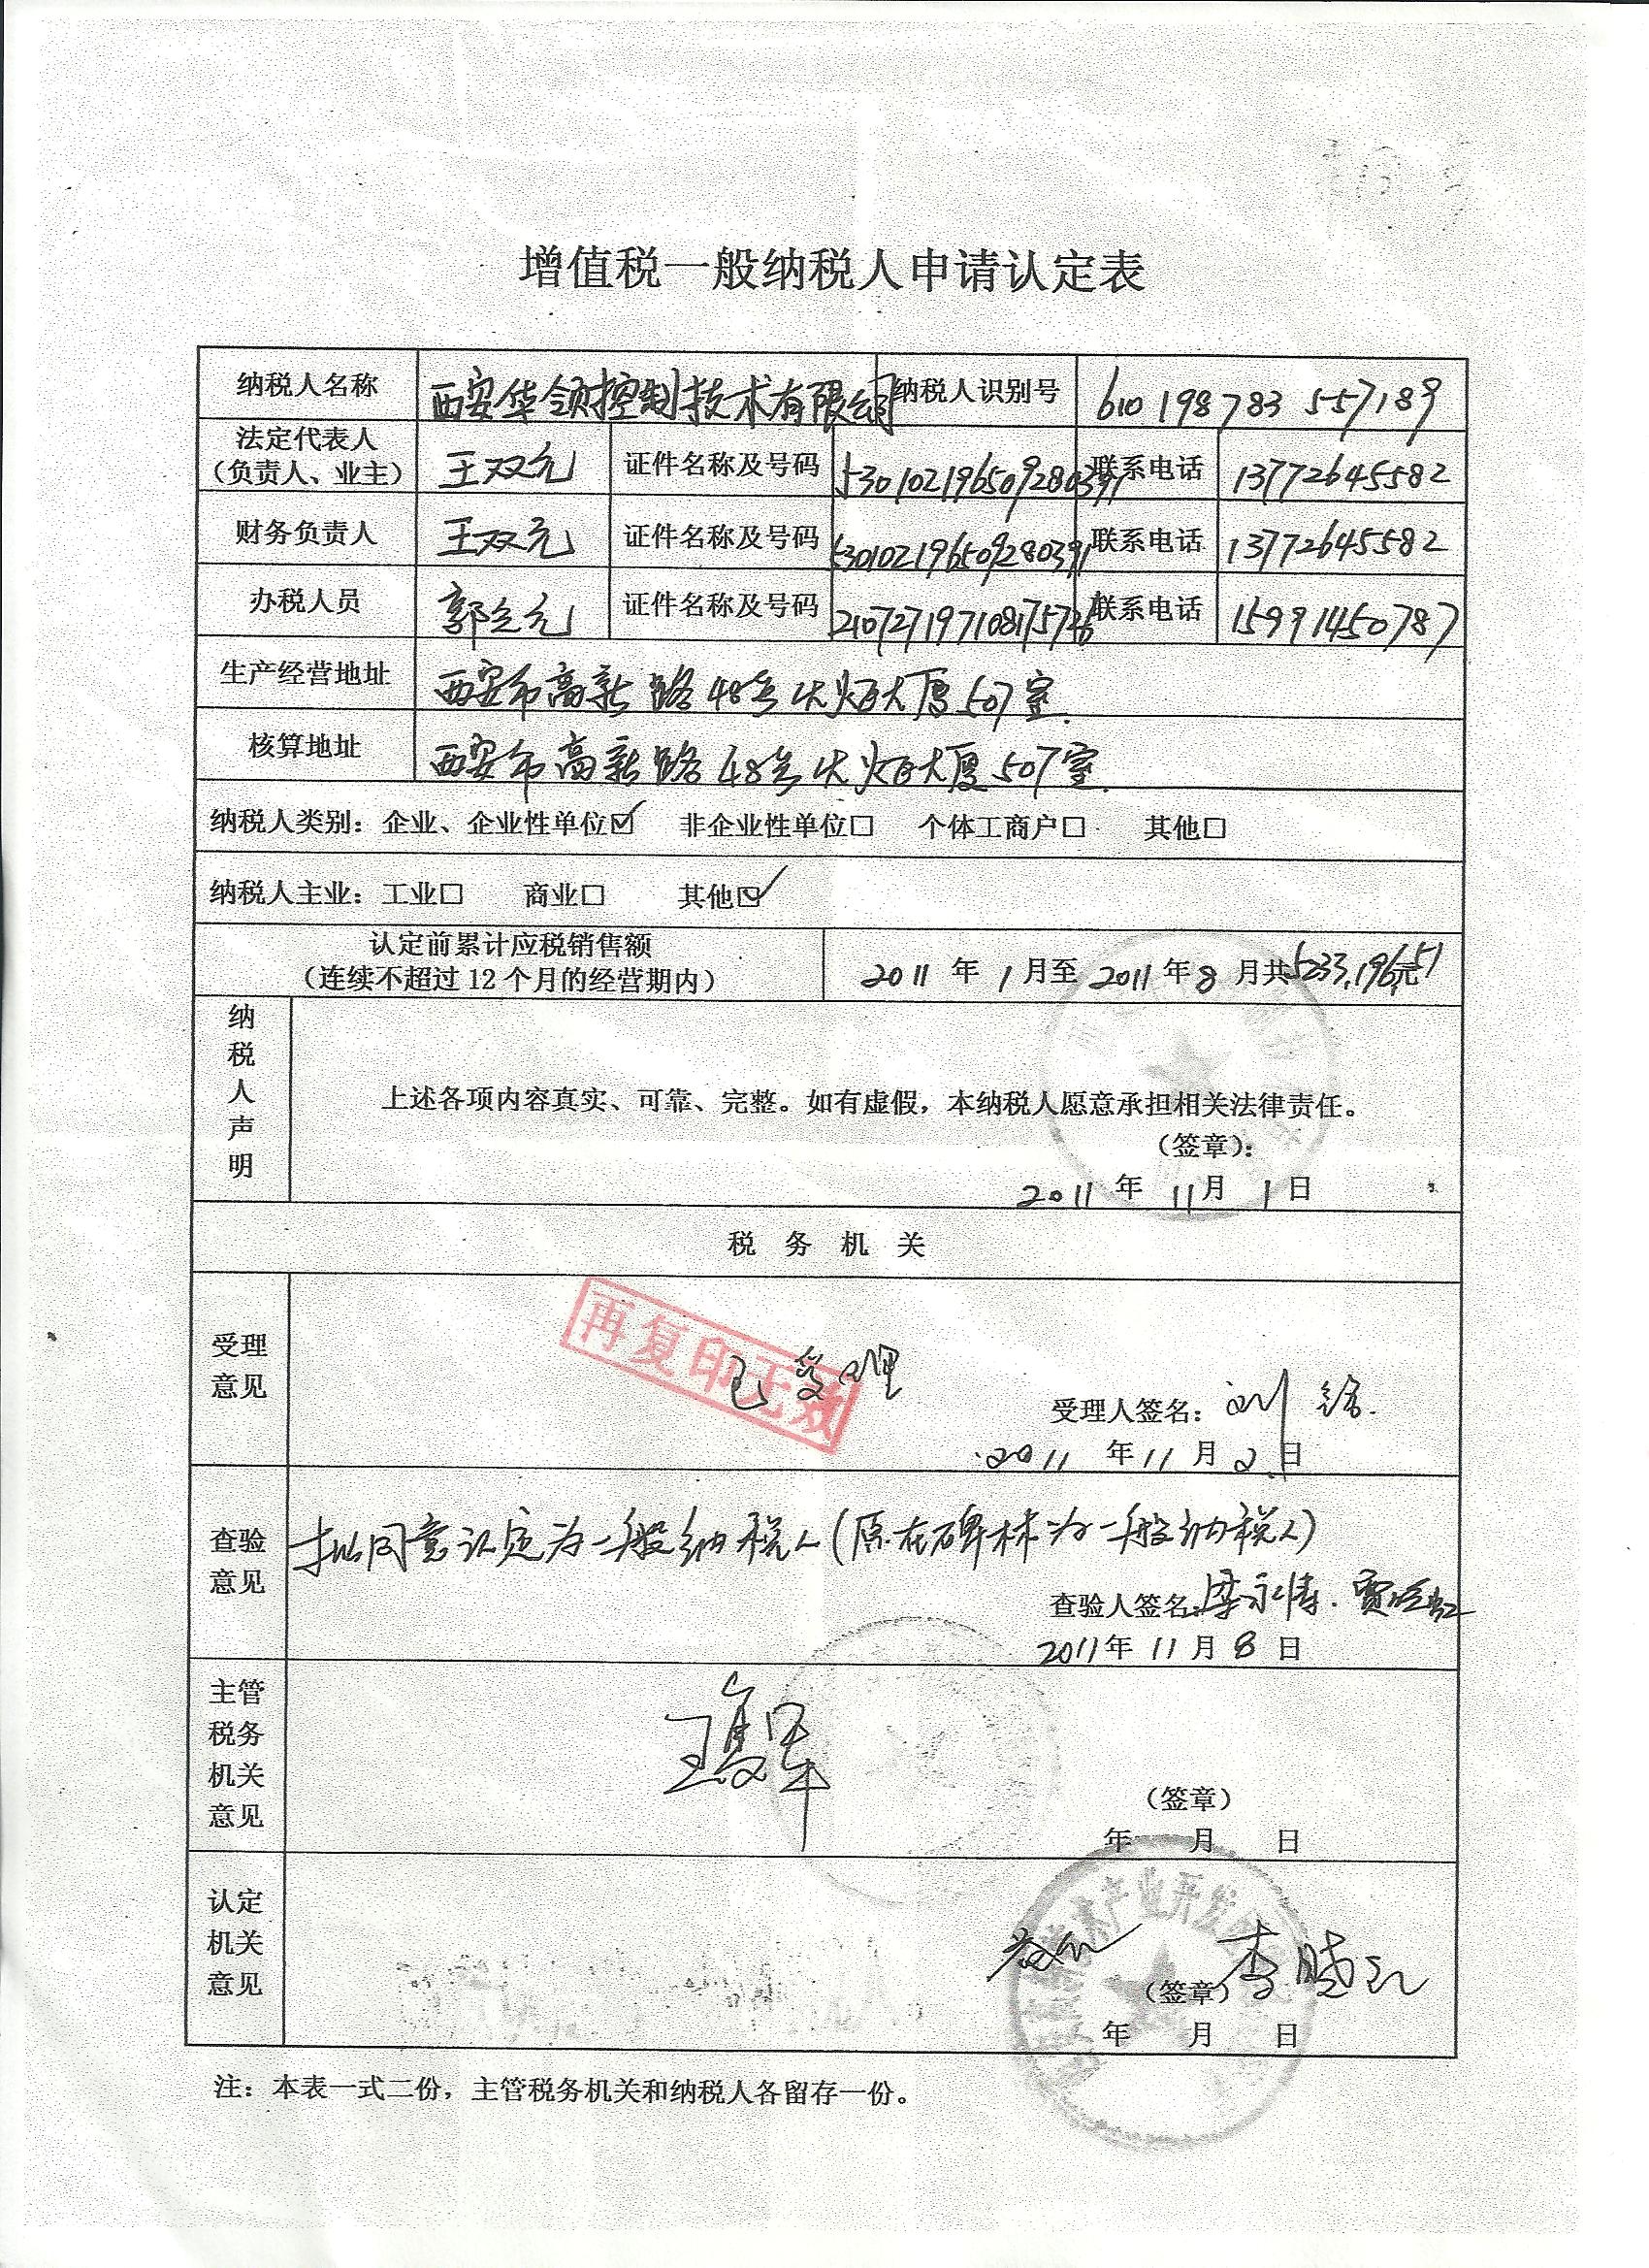 增值税一般纳税人申请认定表
纳税人名称 西安华领控制技术有限公司 纳税人识别号 610198783557189
法定代表人
（负责人、业主） 王双元 证件名称及号码 530102196509280391 联系电话 13772645582
财务负责人 王双元 证件名称及号码 530102196509280391 联系电话 13772645582
办税人员 郭 元 证件名称及号码 联系电话 15991450787
生产经营地址 西安市高新路48号火炬大厦507室.
核算地址 西安市高新路48号火炬大厦507室.
纳税人类别：企业、企业性单位☑ 非企业性单位□ 个体工商户□ 其他□
纳税人主业：工业□ 商业□ 其他☑
认定前累计应税销售额
（连续不超过12个月的经营期内） 2011 年 1 月至 2011 年 8 月共5233,196.51元
纳税人声明
上述各项内容真实、可靠、完整。如有虚假，本纳税人愿意承担相关法律责任。
（签章）：
2011 年 11 月 1 日
税 务 机 关
再复印无效
受理意见 已受理
受理人签名：刘
2011 年 11 月 2 日
查验意见 拟同意认定为一般纳税人(原在碑林为一般纳税人)
查验人签名：
2011 年 11 月 8 日
主管税务机关意见
（签章）
年 月 日
认定机关意见
产业开发
（签章）
年 月 日
注：本表一式二份，主管税务机关和纳税人各留存一份。